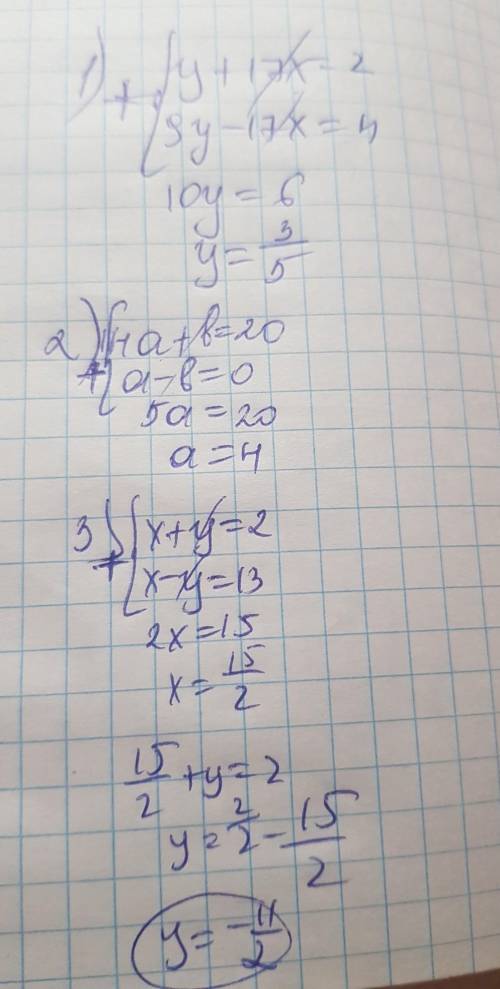 1) + { y + 17x = 2
9y - 17x = 4
10y = 6
y = 3/5
2) + { 4a + b = 20
a - b = 0
5a = 20
a = 4
3) + { x + y = 2
x - y = 13
2x = 15
x = 15/2
15/2 + y = 2
y = 2/2 - 15/2
y = -11/2